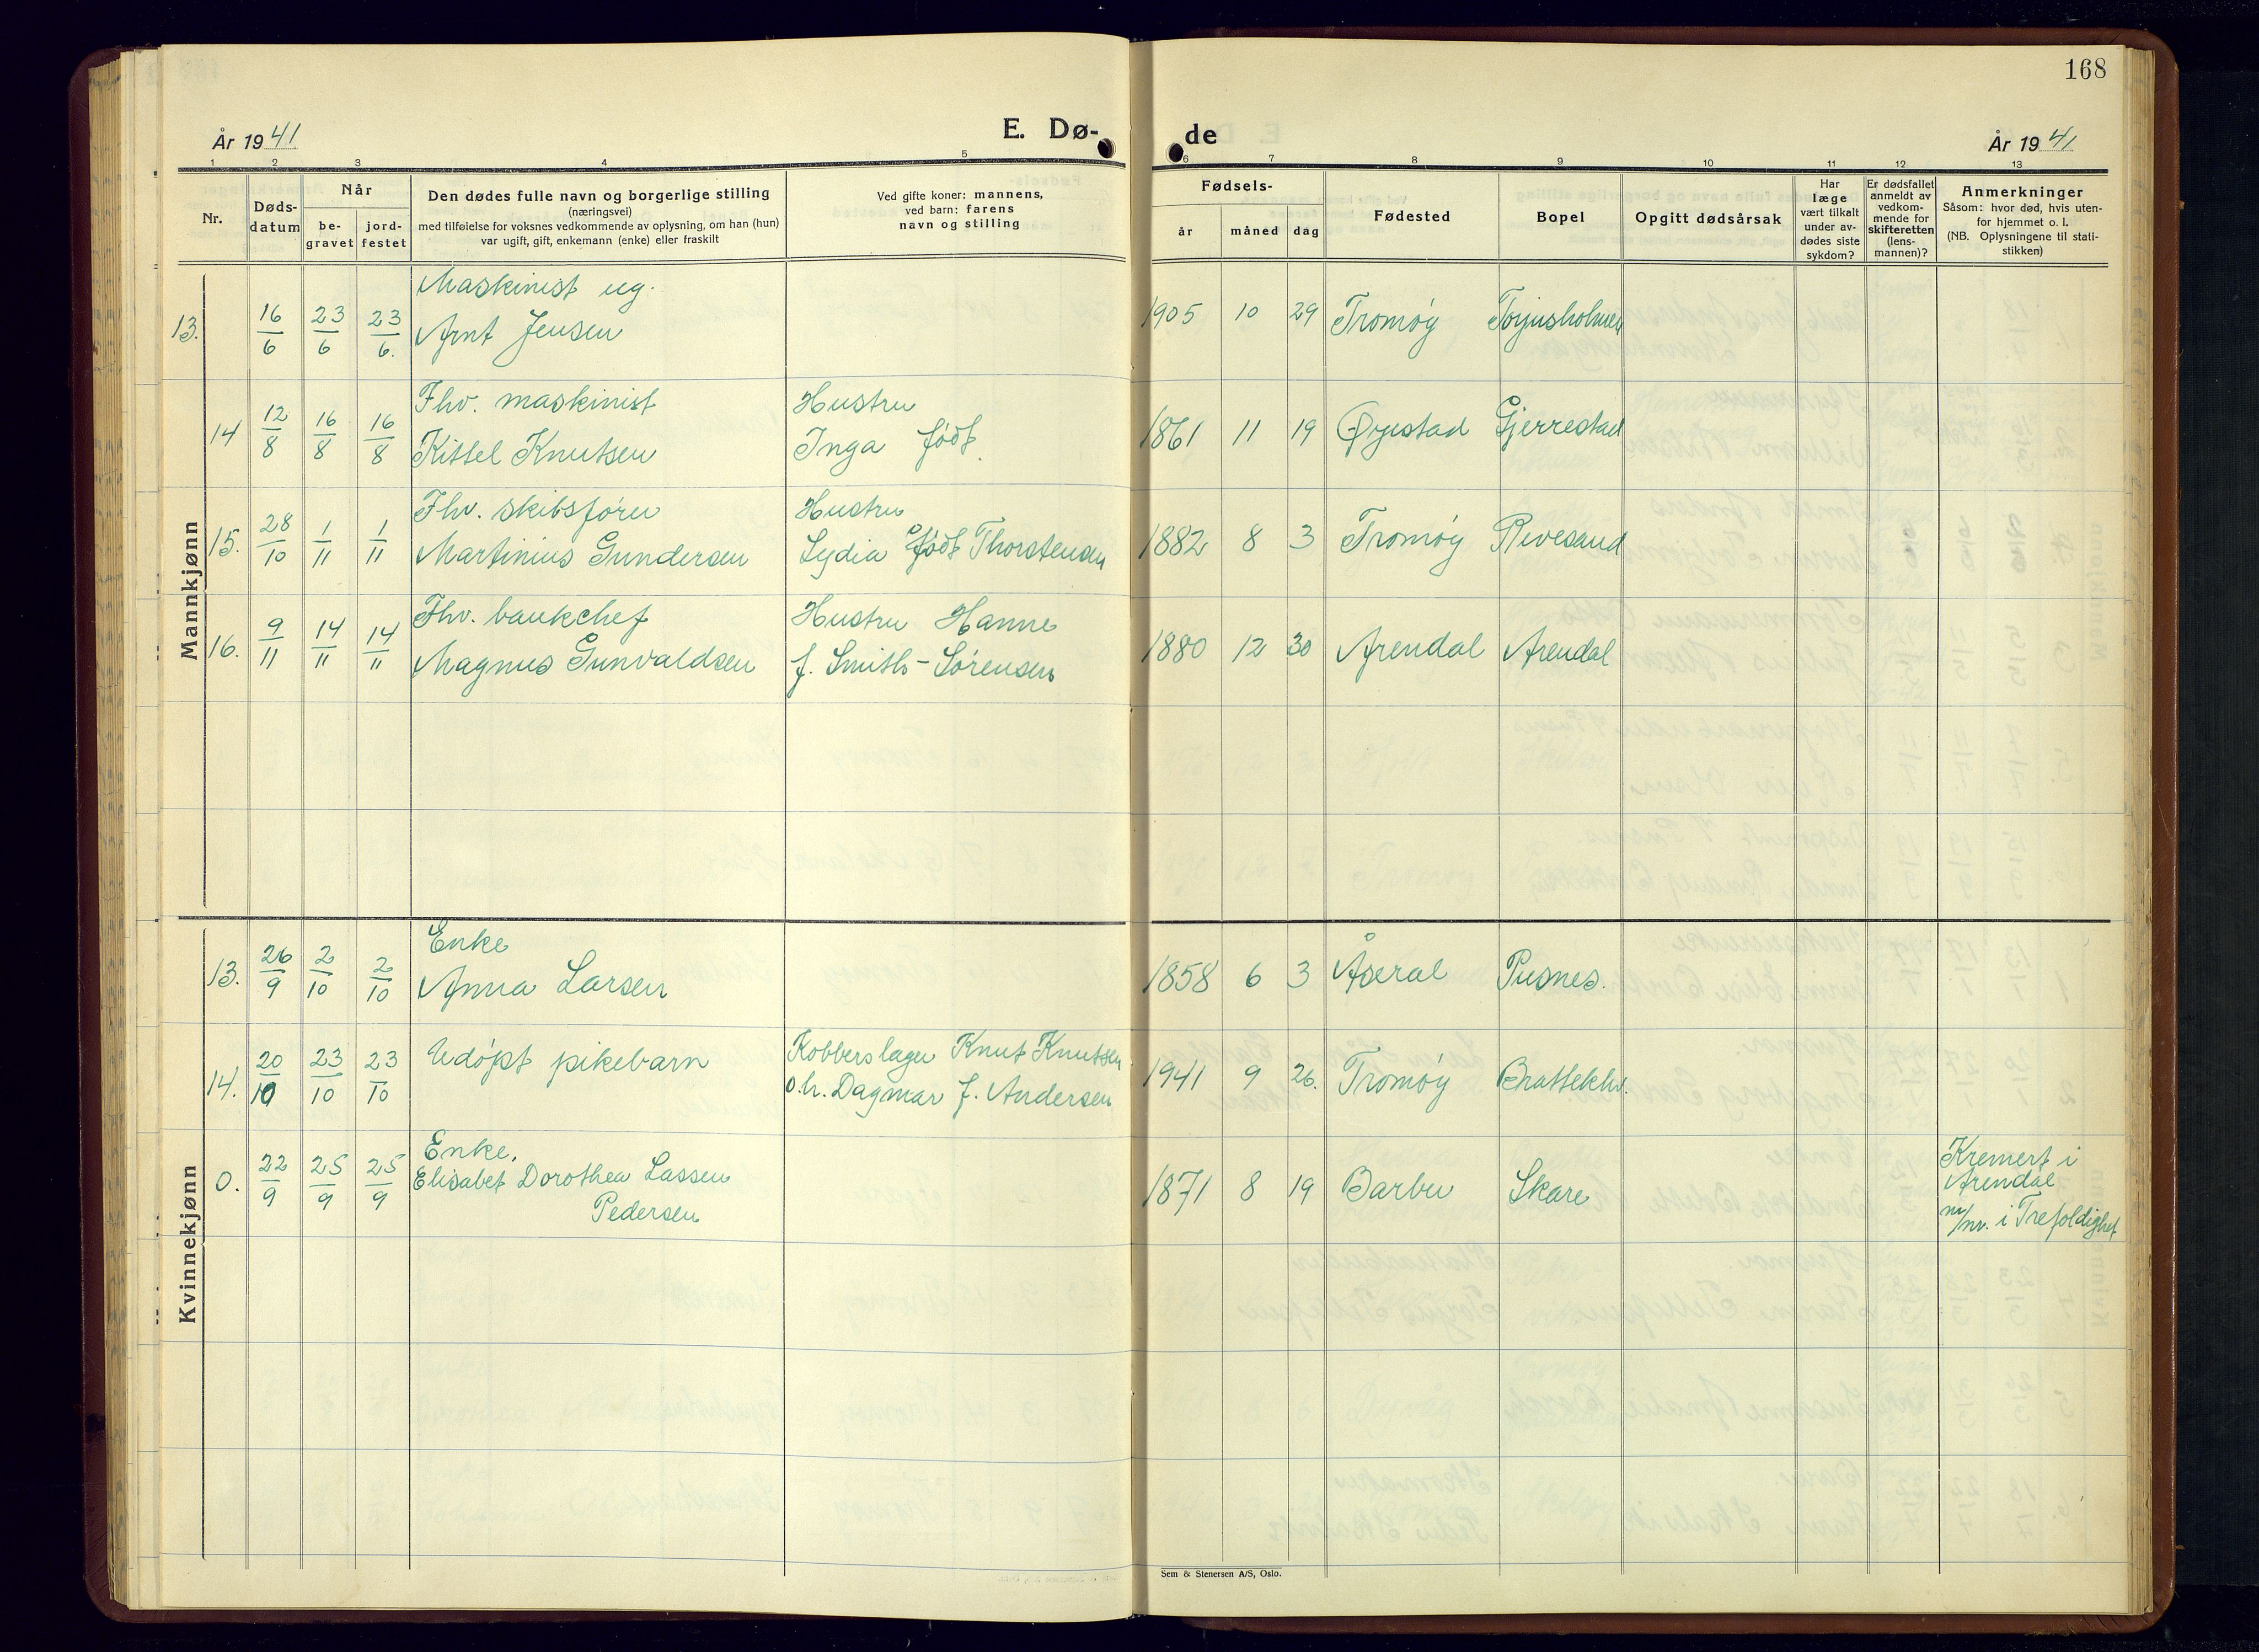 168
År 1941
E. Dø-
de
År 1941
1 2 3 4 5 6 7 8 9 10 11 12 13
Nr.
Døds-
datum
Når
be-
gravet
jord-
festet
Den dødes fulle navn og borgerlige stilling
(næringsvei)
med tilføielse for voksnes vedkommende av oplysning, om han (hun)
var ugift, gift, enkemann (enke) eller fraskilt
Ved gifte koner: mannens,
ved barn: farens
navn og stilling
Fødsels-
år måned dag
Fødested
Bopel
Opgitt dødsårsak
Har
læge
vært tilkalt
under av-
dødes siste
sykdom?
Er dødsfallet
anmeldt av
vedkom-
mende for
skifteretten
(lens-
mannen)?
Anmerkninger
Såsom: hvor død, hvis uten-
for hjemmet o. l.
(NB. Oplysningene til stati-
stikken)
Mannkjønn
Maskinist ug.
13. 16/6 23/6 23/6. Arnt Jensen 1905 10 29 Tromøy Torjusholmen
Fhv. maskinist Hustru
14 12/8 16/8 16/8 Kittel Knutsen Inga født 1861 11 19 Øyestad Gjerrestad
Fhv. skibsfører Hustru
15. 28/10 1/11 1/11 Martinius Gundersen Lydia født Thorstensen 1882 8 3 Tromøy Revesand
Fhv. bankchef Hustru Hanne
16. 9/11 14/11 14/11 Magnus Gunvaldsen f. Smith-Sørensen 1880 12 30 Arendal Arendal
Kvinnekjønn
Enke
13. 26/9 2/10 2/10 Anna Larsen 1858 6 3 Åseral Pusnes.
14. 20/10 23/10 23/10 Udøpt pikebarn Kobberslager Knut Knutsen 1941 9 26. Tromøy Brattekl.
o.h. Dagmar f. Andersen
Enke. Kremert i
0. 22/9 25/9 25/9 Elisabet Dorothea Lassen 1871 8 19 Barbu Skare Arendal
Pedersen i Trefoldighet
Sem & Stenersen A/S, Oslo.